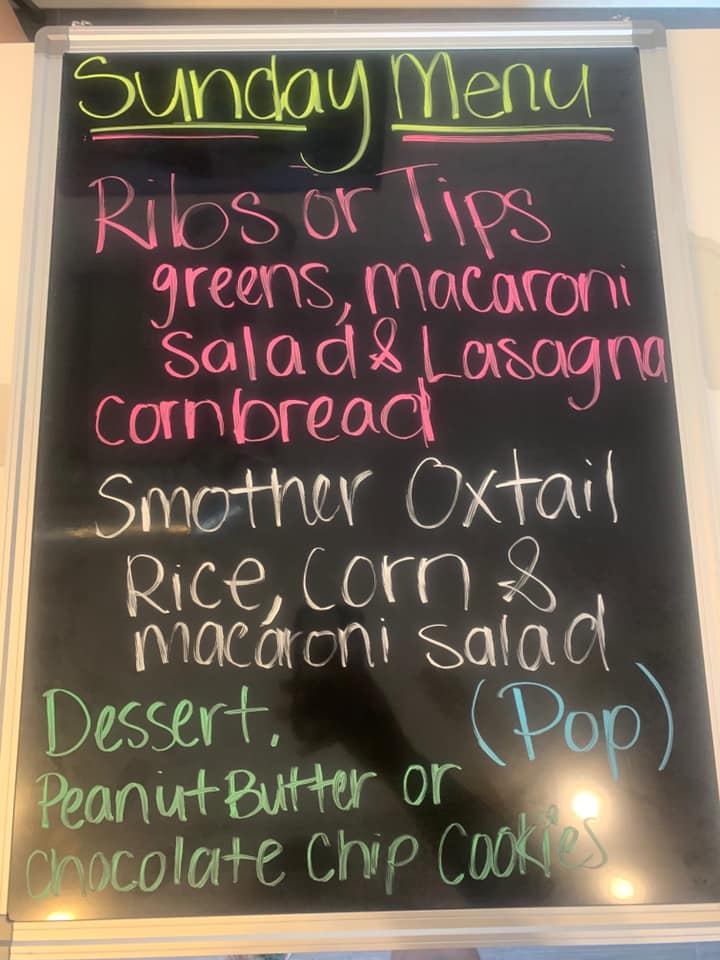 Sunday Menu
Ribs or Tips
greens, macaroni
salad & Lasagna
cornbread
Smother Oxtail
Rice, Corn &
macaroni salad
Dessert. (Pop)
Peanut Butter or
Chocolate Chip Cookies